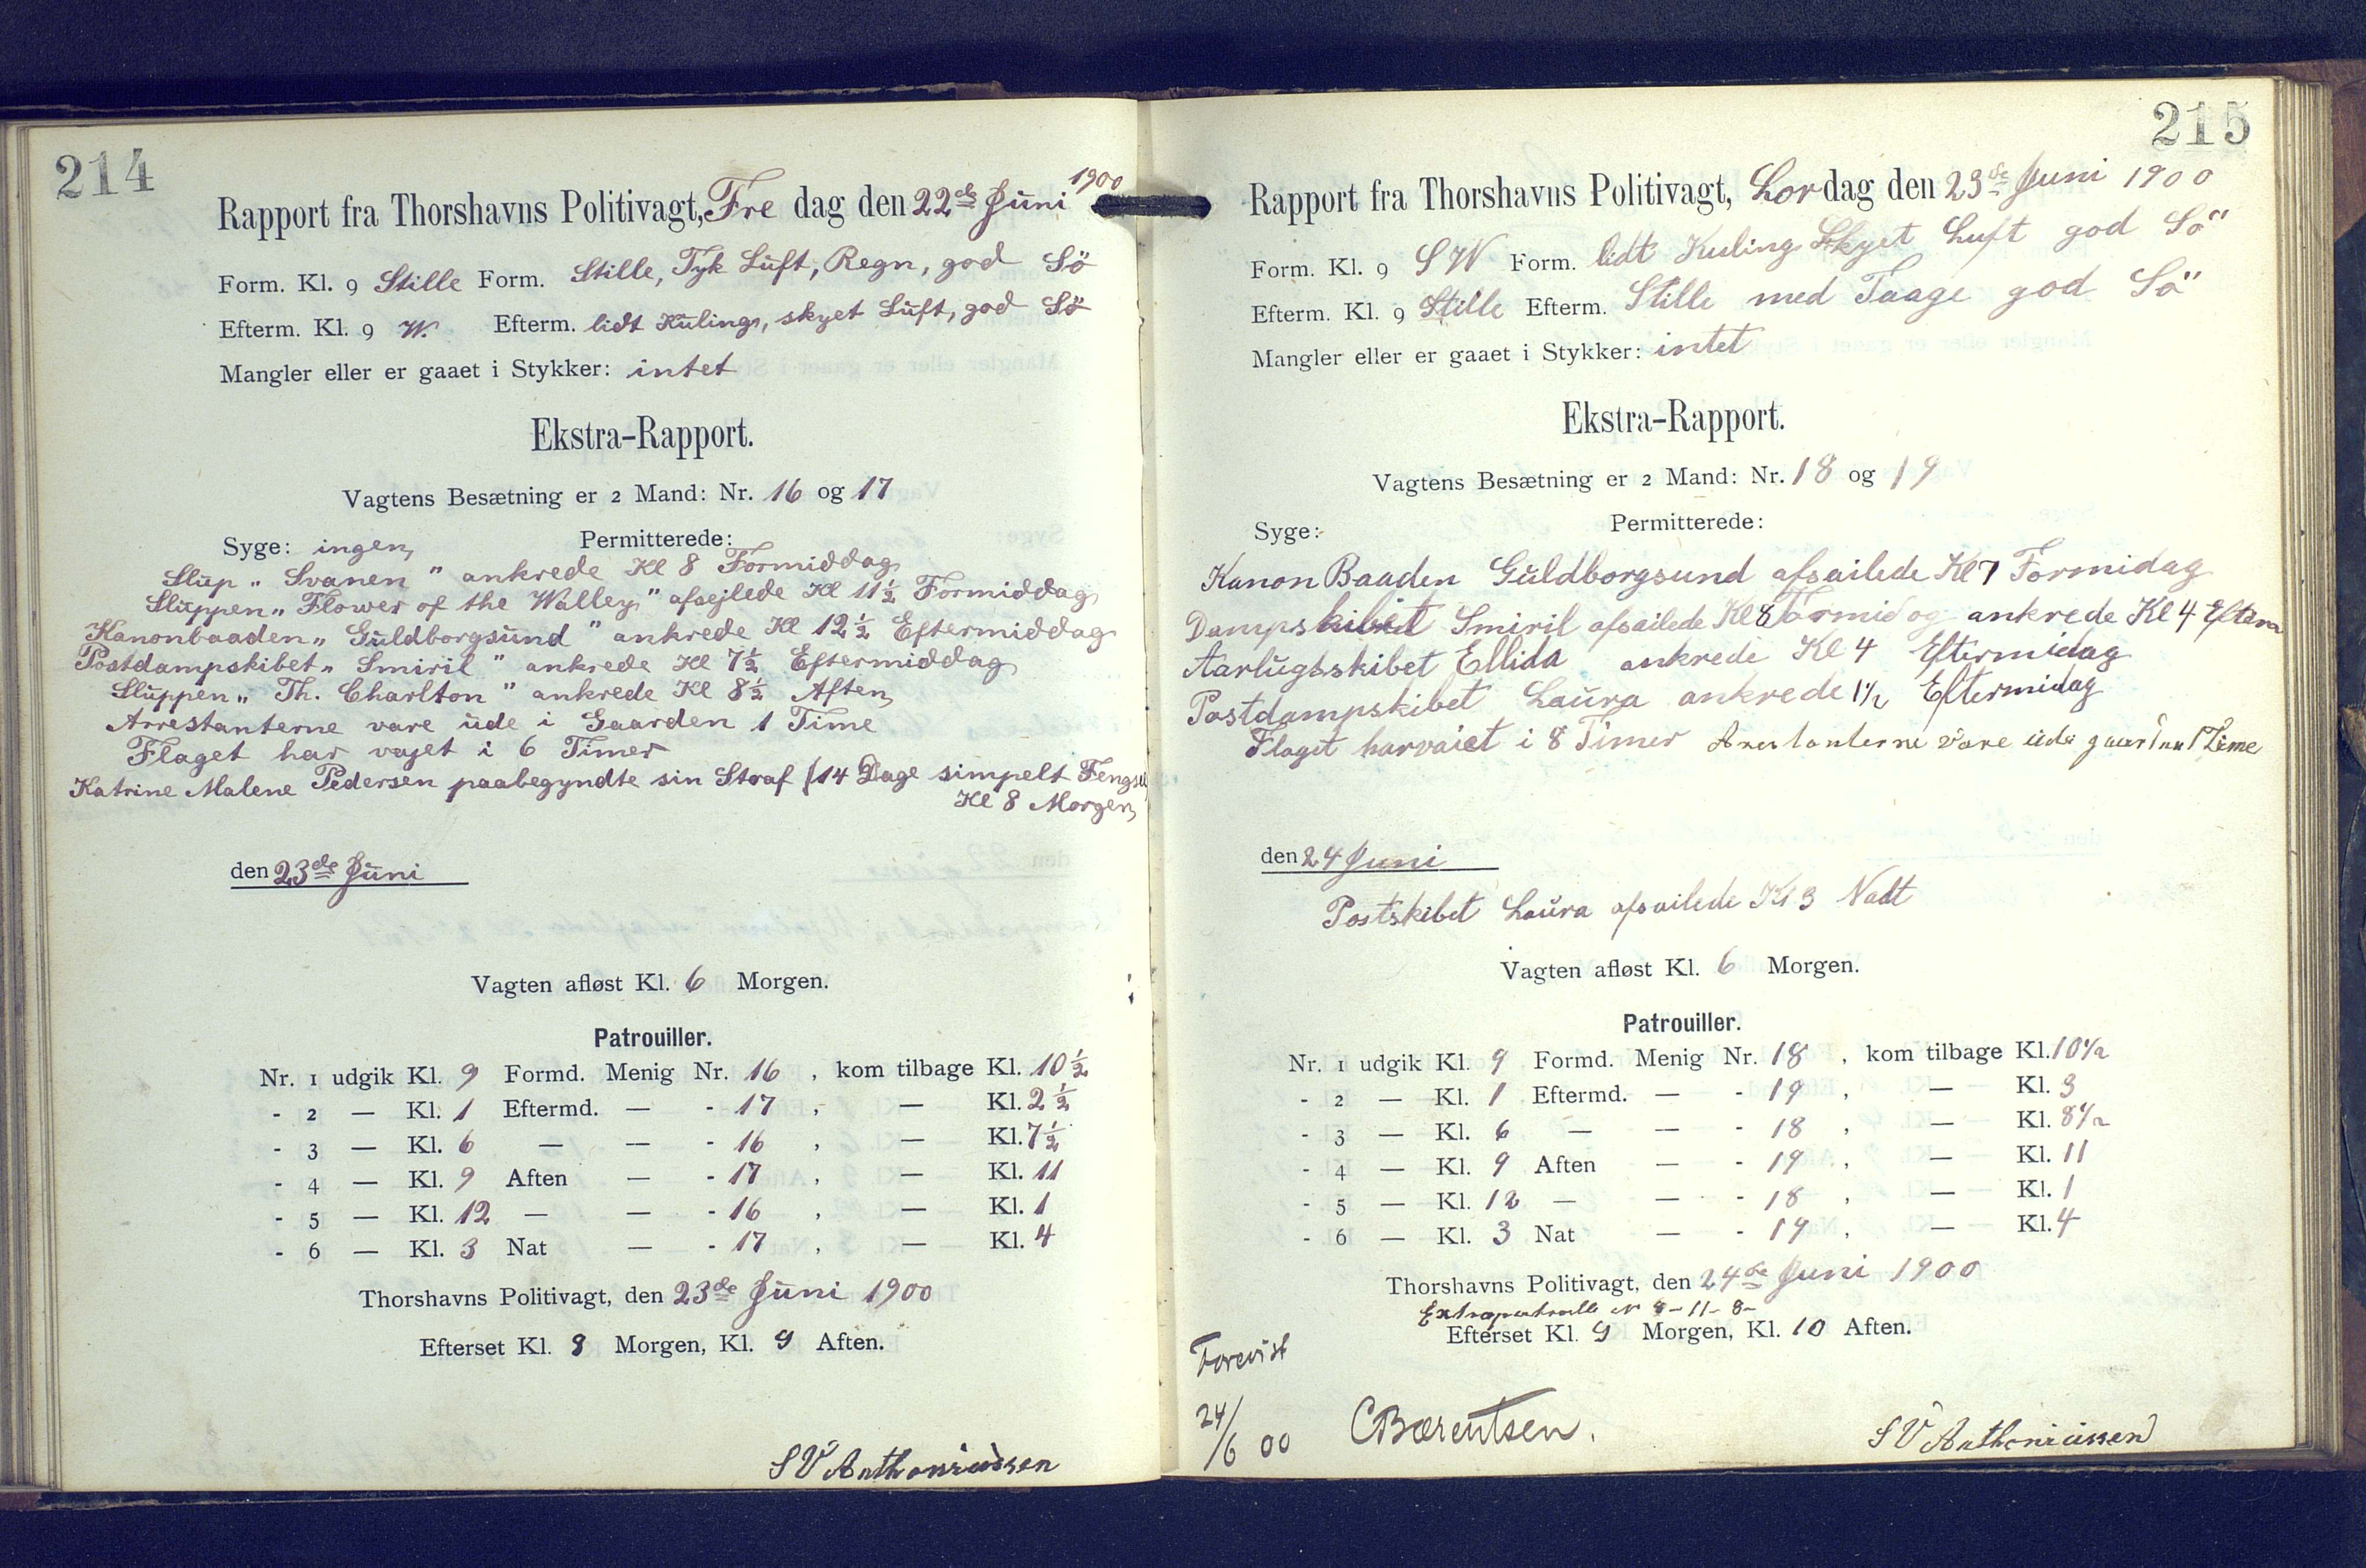 214
Rapport fra Thorshavns Politivagt, Fre dag den 22de Juni 1900
Form. Kl. 9 Stille Form. Stille, Tyk Luft, Regn, god Sö
Efterm. Kl. 9 W. Efterm. lidt Kuling, skyet Luft, god Sö
Mangler eller er gaaet i Stykker: intet
Ekstra-Rapport.
Vagtens Besætning er 2 Mand: Nr. 16 og 17
Syge: ingen, Permitterede:
Slup „ Svanen " ankrede Kl 8 Formiddag
Sluppen „ Flower of the Walley " afsejlede Kl 11½ Formiddag
Kanonbaaden „ Guldborgsund " ankrede Kl 12½ Eftermiddag
Postdampskibet „ Smiril " ankrede Kl 7½ Eftermiddag
Sluppen „ Th. Charlton " ankrede Kl 8½ Aften,
Arrestanterne vare ude i Gaarden 1 Time
Flaget har vajet i 6 Timer
Katrine Malene Pedersen paabegyndte sin Straf (14 Dage simpelt Fengsel
Kl 8 Morgen,
den 23de Juni
Vagten afløst Kl. 6 Morgen.
Patrouiller.
Nr. 1 udgik Kl. 9 Formd. Menig Nr. 16 , kom tilbage Kl. 10½
- 2 — Kl. 1 Eftermd. — - 17 , — Kl. 2½
- 3 — Kl. 6 — — - 16 , — Kl. 7½
- 4 — Kl. 9 Aften — - 17 , — Kl. 11
- 5 — Kl. 12 — — - 16 , — Kl. 1
- 6 — Kl. 3 Nat — - 17 , — Kl. 4
Thorshavns Politivagt, den 23de Juni 1900
Efterset Kl. 8 Morgen, Kl. 9 Aften.
S V Anthoniussen
215
Rapport fra Thorshavns Politivagt, Lordag den 23de Juni 1900
Form. Kl. 9 SW Form. lidt Kuling Skyet Luft god Sö
Efterm. Kl. 9 Stille Efterm. Stille med Taage god Sö
Mangler eller er gaaet i Stykker: intet
Ekstra-Rapport.
Vagtens Besætning er 2 Mand: Nr. 18 og 19
Syge: Permitterede:
Kanon Baaden Guldborgsund afsailede Kl 7 Formidag
Dampskibet Smiril afsailede Kl 8 Formid og ankrede Kl 4 Efterm
Aarlugsskibet Ellida ankrede Kl 4 Eftermidag
Postdampskibet Laura ankrede 1½ Eftermidag
Flaget harvaiet i 8 Timer Arestanterne vare ude gaarden 1 Time
den 24 Juni
Postskibet Laura afsailede Kl 3 Nadt
Vagten afløst Kl. 6 Morgen.
Patrouiller.
Nr. 1 udgik Kl. 9 Formd. Menig Nr. 18 , kom tilbage Kl. 10½
- 2 — Kl. 1 Eftermd. — - 19 , — Kl. 3
- 3 — Kl. 6 — — - 18 , — Kl. 8½
- 4 — Kl. 9 Aften — - 19 , — Kl. 11
- 5 — Kl. 12 — — - 18 , — Kl. 1
- 6 — Kl. 3 Nat — - 19 , — Kl. 4
Thorshavns Politivagt, den 24de Juni 1900
Extrapatroulle - 11 - 8 -
Efterset Kl. 9 Morgen, Kl. 10 Aften.
Forevist
24/6 00 CBærentsen.
S V Anthoniussen